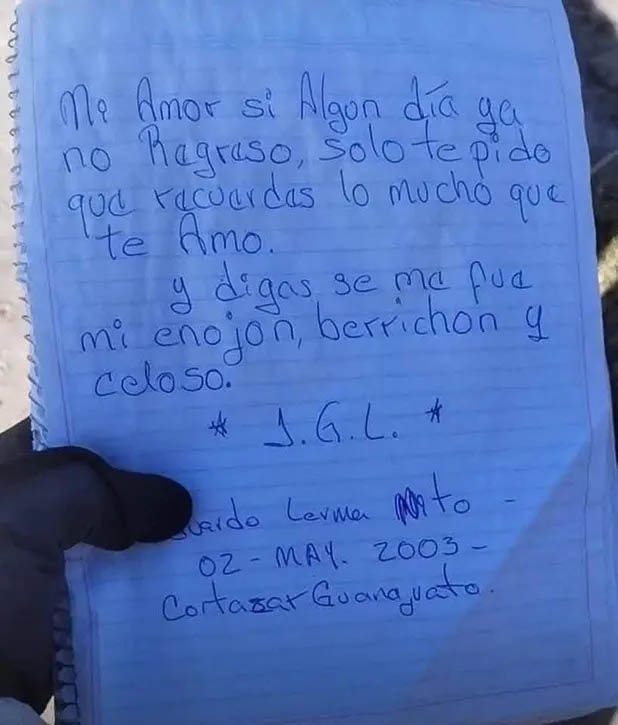 Me Amor si Algon día ya
no Regreso, solo te pido
que recuerdes lo mucho que
te Amo.
y digas se me fue
mi enojon, berrichon y
celoso.
* J.G.L. *
Lerma
02 - MAY. 2003 -
Cortazar Guanajuato.